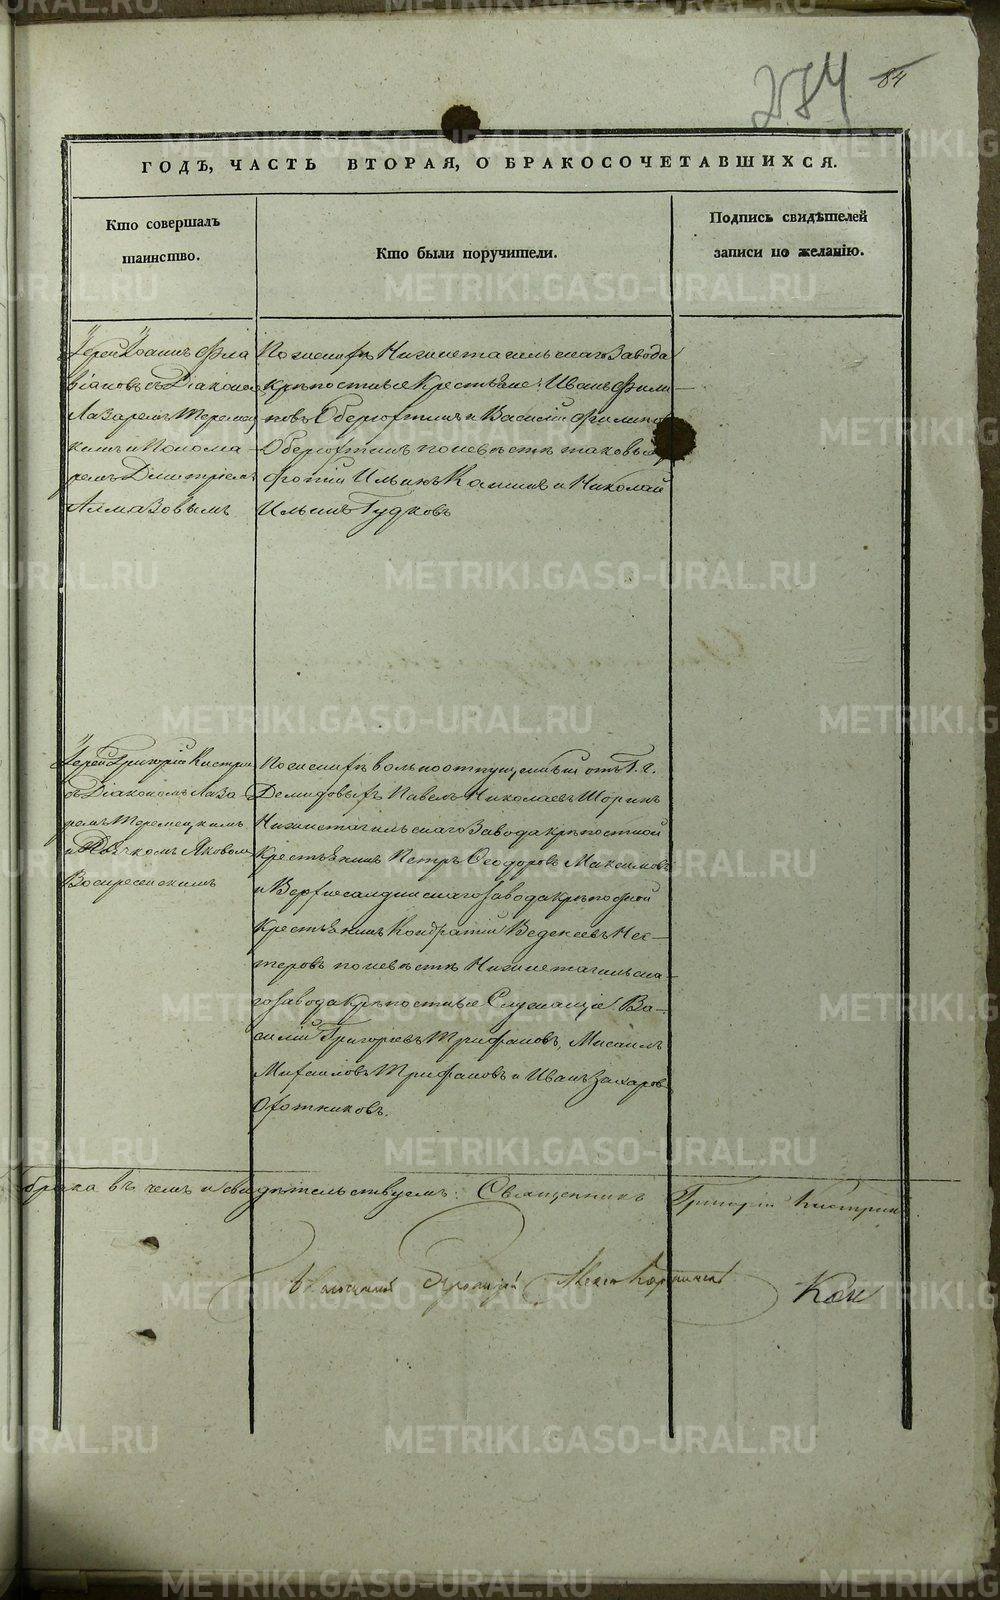 284 84
ГОДЪ, ЧАСТЬ ВТОРАЯ, О БРАКОСОЧЕТАВШИХСЯ.
Кто совершалъ
таинство.
Кто были поручители.
Подпись свидѣтелей
записи по желанію.
Іерей Іоаннъ Фла
віановъ съ Діакономъ
Лазаремъ Теремец
кимъ и Понома
ремъ Димитріемъ
Алмазовымъ
По женихѣ Нижнетагильскаго Завода
крѣпостные Крестьяне: Иванъ Фили-
повъ Оберюхтинъ и Василій Филиповъ
Оберюхтинъ по невѣстѣ таковые
Фотій Ильинъ и Николай
Ильинъ Гудковъ
Іерей Григорій Кистрин
съ Діакономъ Лаза
ремъ Теремецкимъ
и Дьячкомъ Яковомъ
Воскресенскимъ
По женихѣ вольноотпущенный отъ Г. г.
Демидовыхъ Павелъ Николаевъ Шоринъ
Нижнетагильскаго Завода крѣпостной
Крестьянинъ Петръ Ѳеодоровъ Максимовъ
и Верхнесалдинскаго завода крѣпосной
Крестьянинъ Кондратій Ведекеевъ Нех-
теровъ по невѣстѣ Нижнетагильска-
го завода крѣпостные Служащіе Ва-
силій Григорьевъ Трифановъ, Мисаилъ
Михаиловъ Трифановъ и Иванъ Захаровъ
Охотниковъ.
брака въ чемъ и свидѣтельствуемъ: Священникъ Григорій Кистрин
METRIKI.GASO-URAL.RU